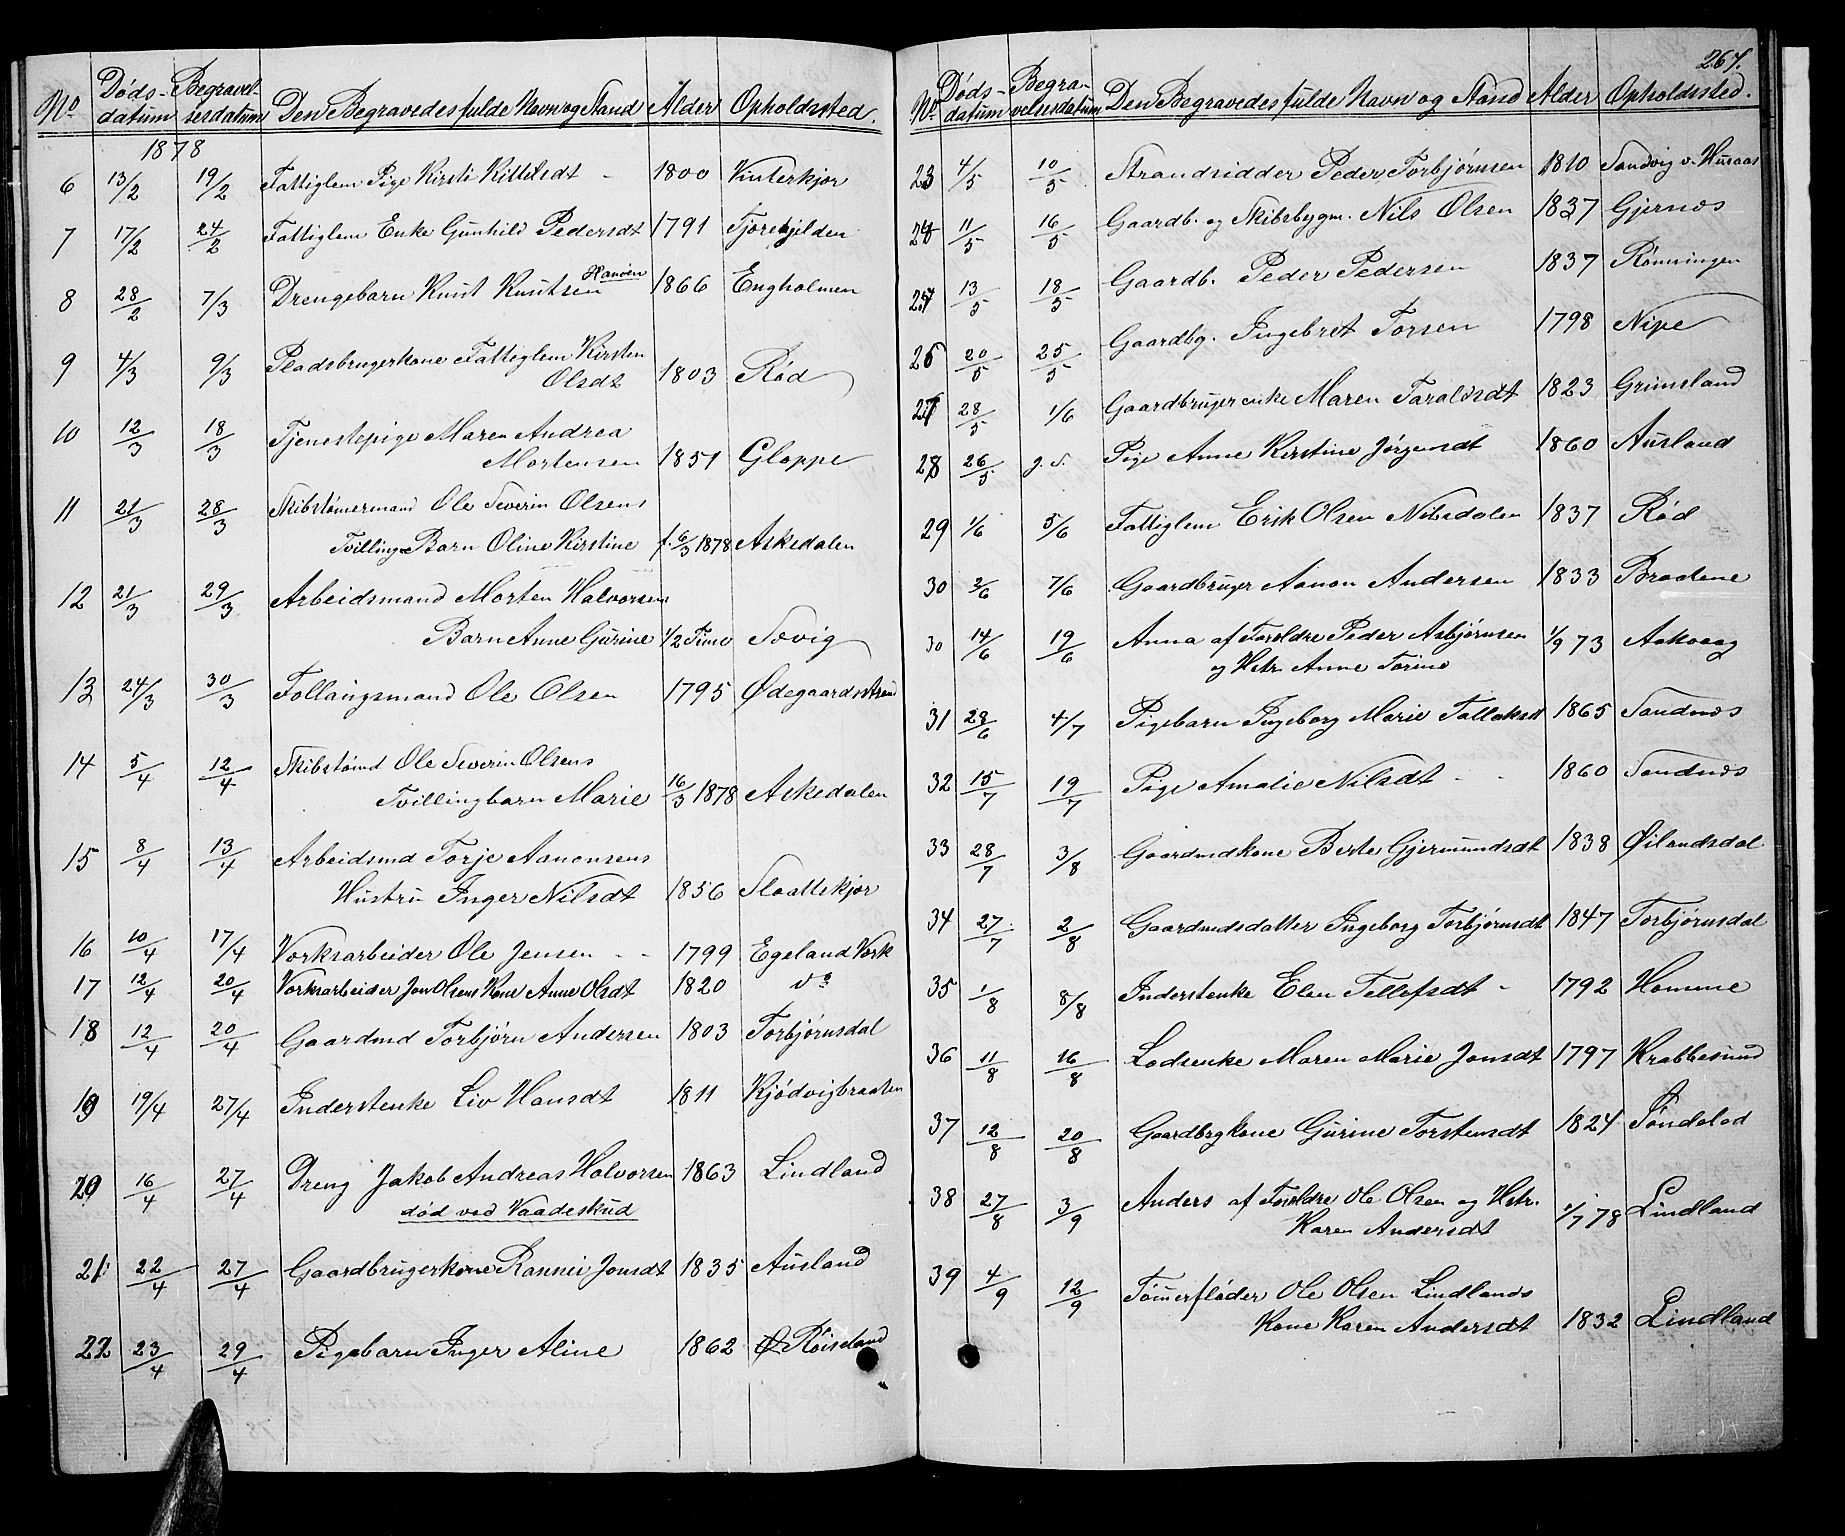 No Dødsdatum Begravelsesdatum Den Begravedes fulde Navn og Stand Alder Opholdssted.
1878
6 13/2 19/2 Fattiglem Pige Kirsti Kittelsdt - 1800 Vinterkjær
7 17/2 24/2 Fattiglem Enke Gunhild Pedersdt 1791
8 28/2 7/3 Drengebarn Knut Knutsen Hanøen 1866 Engholmen
9 4/3 9/3 Pladsbrugerkone Fattiglem Kirsten
Olsdt 1803 Rød
10 12/3 18/3 Tjenestepige Maren Andrea
Mortensen 1851 Gloppe
11 21/3 28/3 Skibstømermand Ole Severin Olsens
Tvillinge Barn Oline Kirstine f. 6/3 1878 Askedalen
12 21/3 29/3 Arbeidsmand Morten Halvorsens
Barn Anne Gurine 1/2 Time Sævig
13 24/3 30/3 Follaugsmand Ole Olsen 1795 Ødegaardsstrand
14 5/4 12/4 Skibstømd Ole Severin Olsens
Tvillingbarn Marie 16/3 1878 Askedalen
15 8/4 13/4 Arbeidsmd Torje Aanonsens
Hustru Inger Nilsdt 1856 Slaattekjær
16 10/4 17/4 Værksarbeider Ole Jensen - - 1799 Egeland Værk
17 12/4 20/4 Værksarbeider Jon Olsens Kone Anne Olsdt 1820 do
18 12/4 20/4 Gaardmd Torbjørn Andersen 1803 Torbjørnsdal
19 19/4 27/4 Inderstenke Liv Hansdt 1811 Kjødvigbraaten
20 16/4 27/4 Dreng Jakob Andreas Halvorsen 1863 Lindland
død ved Vaadeskud
21 22/4 27/4 Gaardbrugerkone Rannei Jonsdt 1835 Ausland
22 23/4 29/4 Pigebarn Inger Aline 1862 Ø Røiseland
267.
No. Dødsdatum Begravelsesdatum Den Begravedes fulde Navn og Stand Alder Opholdssted.
23 4/5 10/5 Strandsidder Peder Torbjørnsen 1810 Sandvig v. Husaas
24 11/5 16/5 Gaardb. og Skibsbygm. Nils Olsen 1837 Gjernæs
25 13/5 18/5 Gaardb. Peder Pedersen 1837 Rømningen
26 20/5 25/5 Gaardbg. Ingebret Torsen 1798 Nipe
27 28/5 1/6 Gaardbruger enke Maren Taraldsdt 1823 Grimsland
28 26/5 J. S. Pige Anne Kirstine Jørgensdt 1860 Ausland
29 1/6 5/6 Fattiglem Erik Olsen Nilsdalen 1837 Rød
30 3/6 7/6 Gaardbruger Aanon Andersen 1833 Braatene
30 14/6 19/6 Anna af Forældre Peder Asbjørnsen 1/9 73 Aakvaag
og Hstr. Anne Torine
31 28/6 4/7 Pigebarn Ingeborg Marie Tallaksdt 1865 Sandnæs
32 15/7 19/7 Pige Amalie Nilsdt - - 1860 Sandnæs
33 28/7 3/8 Gaardmdkone Berte Gjermundsdt 1838 Øilandsdal
34 27/7 2/8 Gaardmdsdatter Ingeborg Torbjørnsdt 1847 Torbjørnsdal
35 1/8 8/8 Inderstenke Elen Tellefsdt - 1792 Homme
36 11/8 16/8 Lodsenke Maren Marie Jonsdt 1797 Krabbesund
37 12/8 20/8 Gaardbrgkone Gurine Torstensdt 1824 Søndeled
38 27/8 3/9 Anders af Forældre Ole Olsen og Hstr.
Karen Andersdt 1/7 78 Lindland
39 4/9 12/9 Tømmerfløder Ole Olsen Lindlands
Kone Karen Andersdt 1832 Lindland